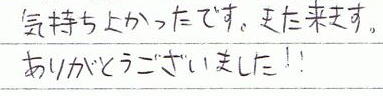 気持ちよかったです。また来ます。
ありがとうございました!!